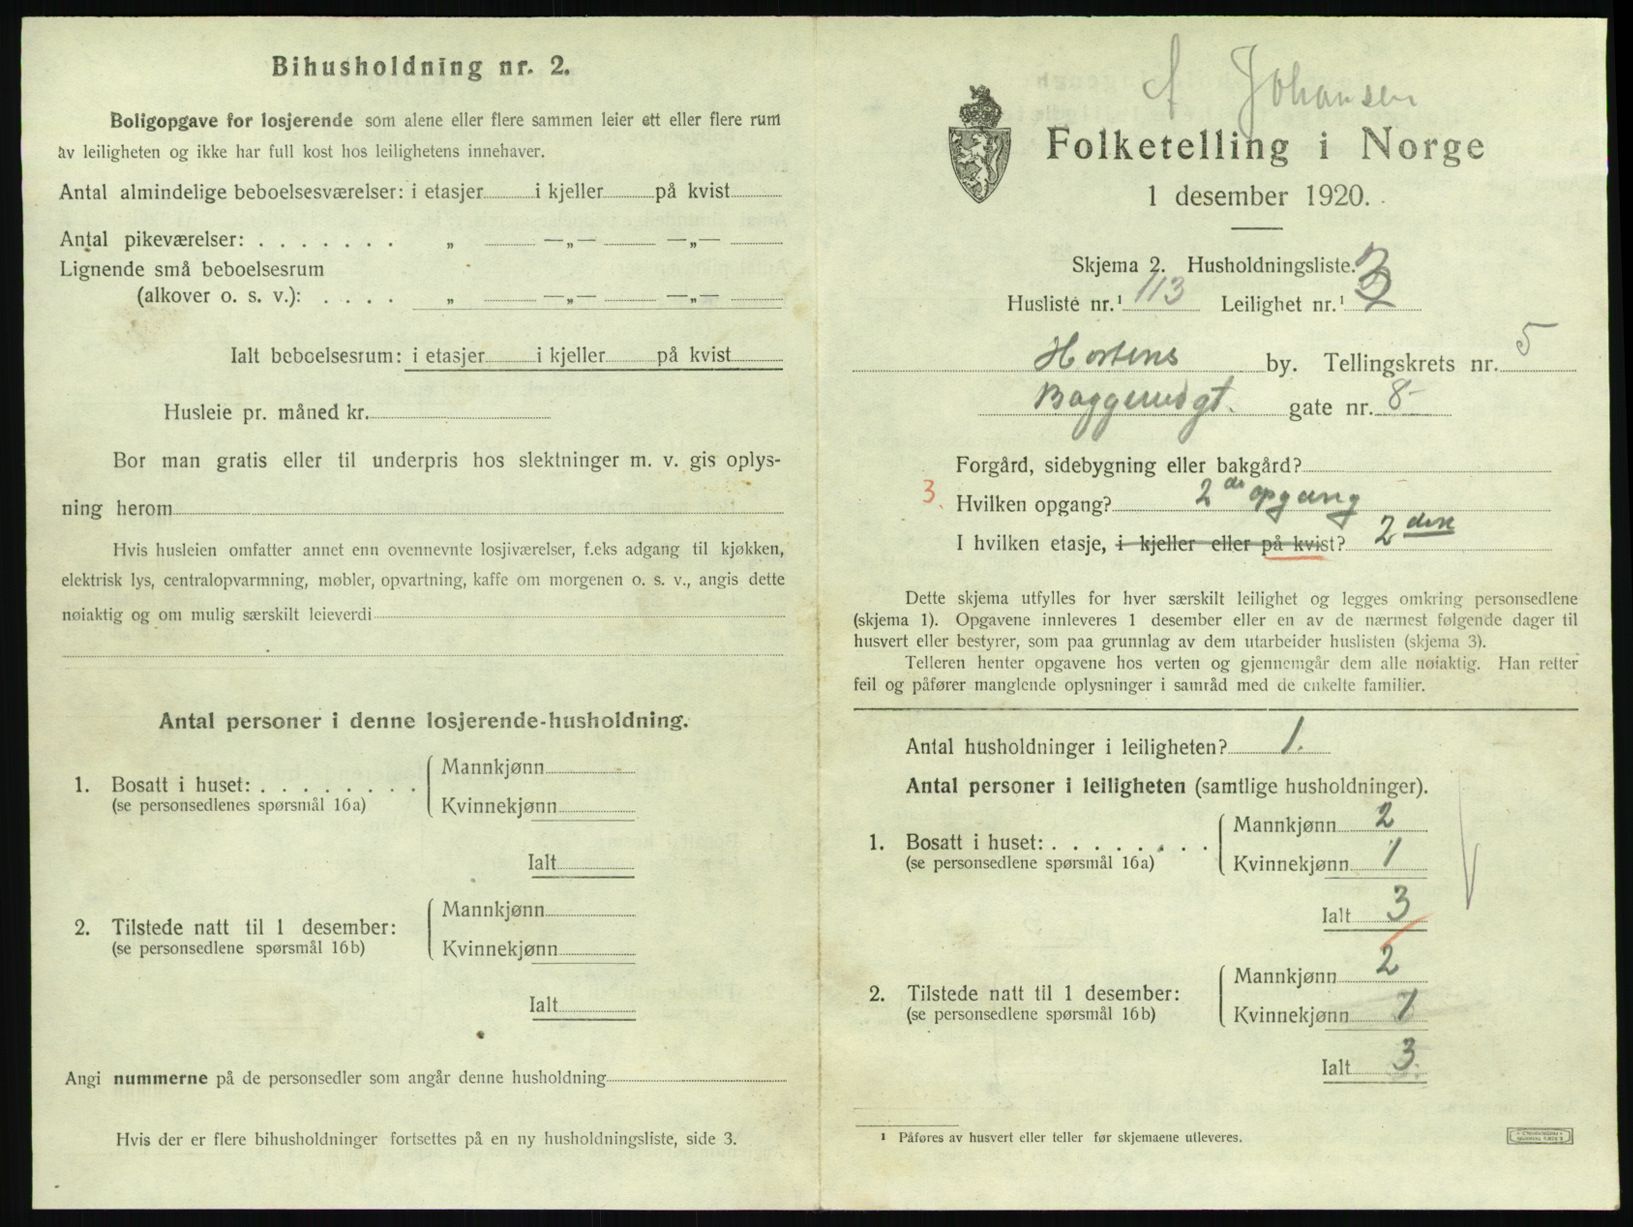 Bihusholdning nr. 2.
Boligopgave for losjerende som alene eller flere sammen leier ett eller flere rum
av leiligheten og ikke har full kost hos leilighetens innehaver.
Antal almindelige beboelsesværelser: i etasjer i kjeller på kvist
Antal pikeværelser: . . . . . . . „ —„— —„—
Lignende små beboelsesrum
(alkover o. s. v.): . . . . „ —„— —„—
Ialt beboelsesrum: i etasjer i kjeller på kvist
Husleie pr. måned kr.
Bor man gratis eller til underpris hos slektninger m. v. gis oplys-
ning herom
Hvis husleien omfatter annet enn ovennevnte losjiværelser, f.eks adgang til kjøkken,
elektrisk lys, centralopvarmning, møbler, opvartning, kaffe om morgenen o. s. v., angis dette
nøiaktig og om mulig særskilt leieverdi
Antal personer i denne losjerende-husholdning.
1. Bosatt i huset: . . . . . . . .
(se personsedlenes spørsmål 16a)
Mannkjønn
Kvinnekjønn
Ialt
2. Tilstede natt til 1 desember:
(se personsedlene spørsmål 16b)
Mannkjønn
Kvinnekjønn
Ialt
Angi nummerne på de personsedler som angår denne husholdning
Hvis der er flere bihusholdninger fortsettes på en ny husholdningsliste, side 3.
A Johansen
Folketelling i Norge
1 desember 1920.
Skjema 2. Husholdningsliste.
Husliste nr.¹ 113 Leilighet nr.¹ 3
Hortens by. Tellingskrets nr. 5
gate nr. 8
Forgård, sidebygning eller bakgård?
3. Hvilken opgang? 2 de opgang
I hvilken etasje, i kjeller eller på kvist? 2
Dette skjema utfylles for hver særskilt leilighet og legges omkring personsedlene
(skjema 1). Opgavene innleveres 1 desember eller en av de nærmest følgende dager til
husvert eller bestyrer, som paa grunnlag av dem utarbeider huslisten (skjema 3).
Telleren henter opgavene hos verten og gjennemgår dem alle nøiaktig. Han retter
feil og påfører manglende oplysninger i samråd med de enkelte familier.
Antal husholdninger i leiligheten? 1.
Antal personer i leiligheten (samtlige husholdninger).
1. Bosatt i huset: . . . . . . . .
(se personsedlene spørsmål 16a)
Mannkjønn 2
Kvinnekjønn 1
Ialt 3
2. Tilstede natt til 1 desember:
(se personsedlene spørsmål 16b)
Mannkjønn 2
Kvinnekjønn 1
Ialt 3
¹ Påføres av husvert eller teller før skjemaene utleveres.